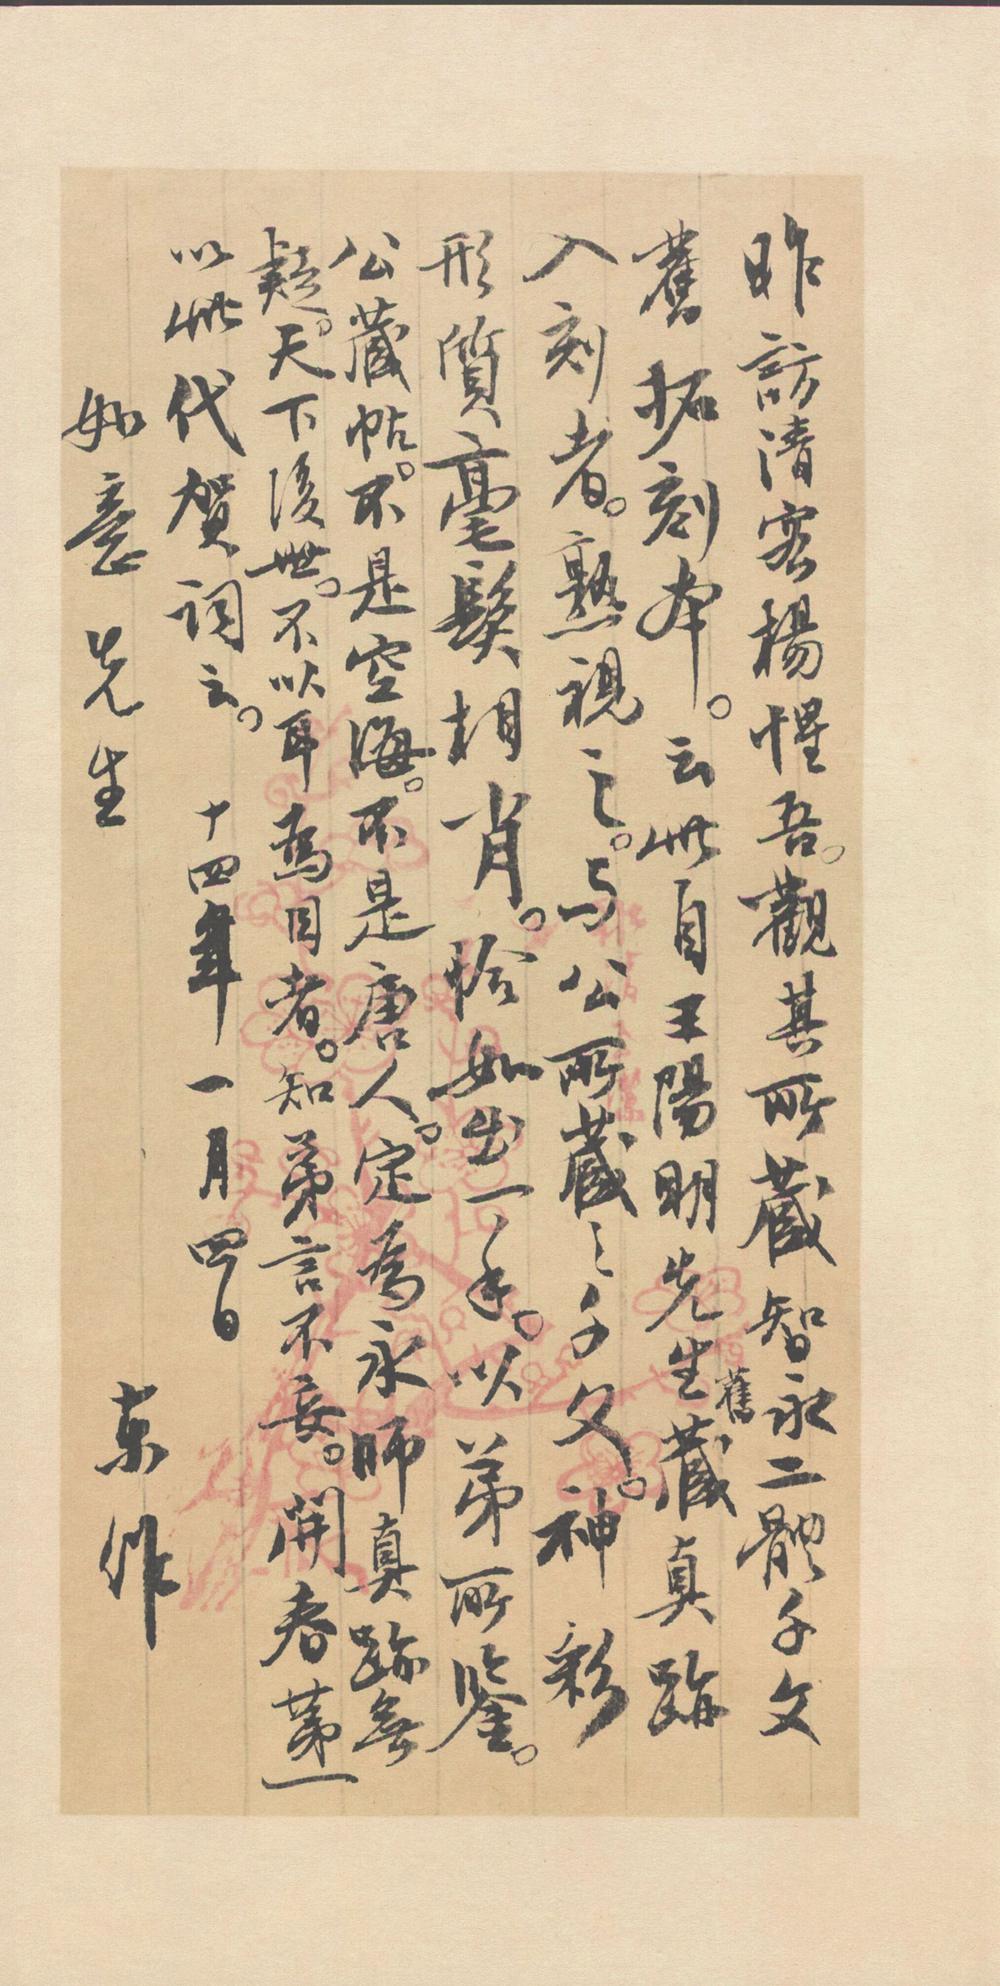 昨訪清客楊惺吾。觀其所藏智永二體千文
舊拓刻本。云此自王陽明先生舊藏真跡
入刻者。熟視之。与公所藏之千文。神彩
形質毫髮相肖。恰如出一手。以弟所鑒。
公藏帖。不是空海。不是唐人。定為永師真跡無
疑。天下後世。不以耳為目者。知弟言不妄。開春第一
以此代賀詞云。 十四年一月四日 東作
如意先生